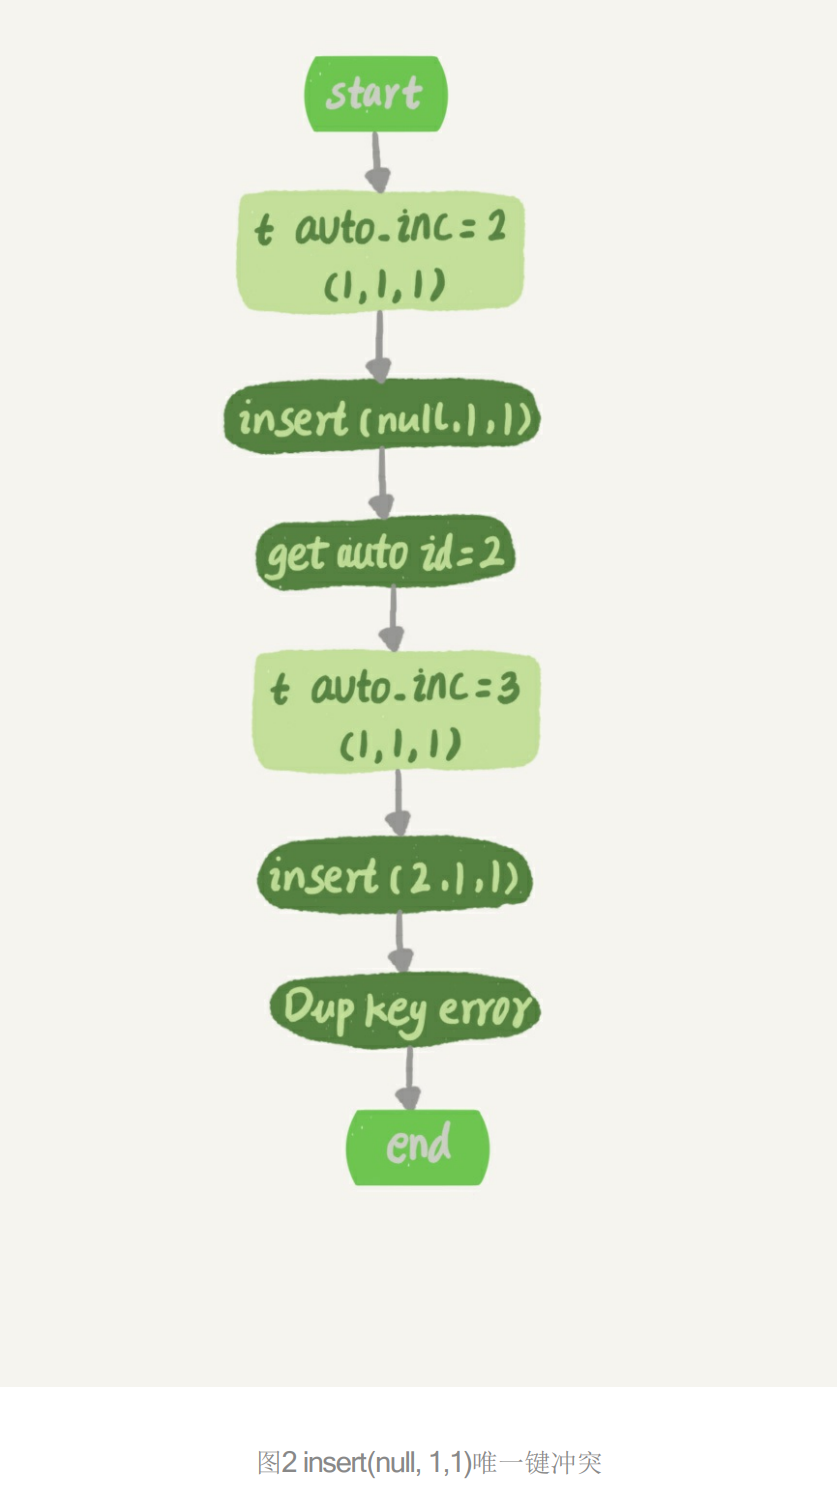 start
t auto_inc=2
(1,1,1)
insert(null.1,1)
get auto id=2
t auto_inc=3
(1,1,1)
insert(2.1,1)
Dup key error
end
图2 insert(null, 1,1)唯一键冲突